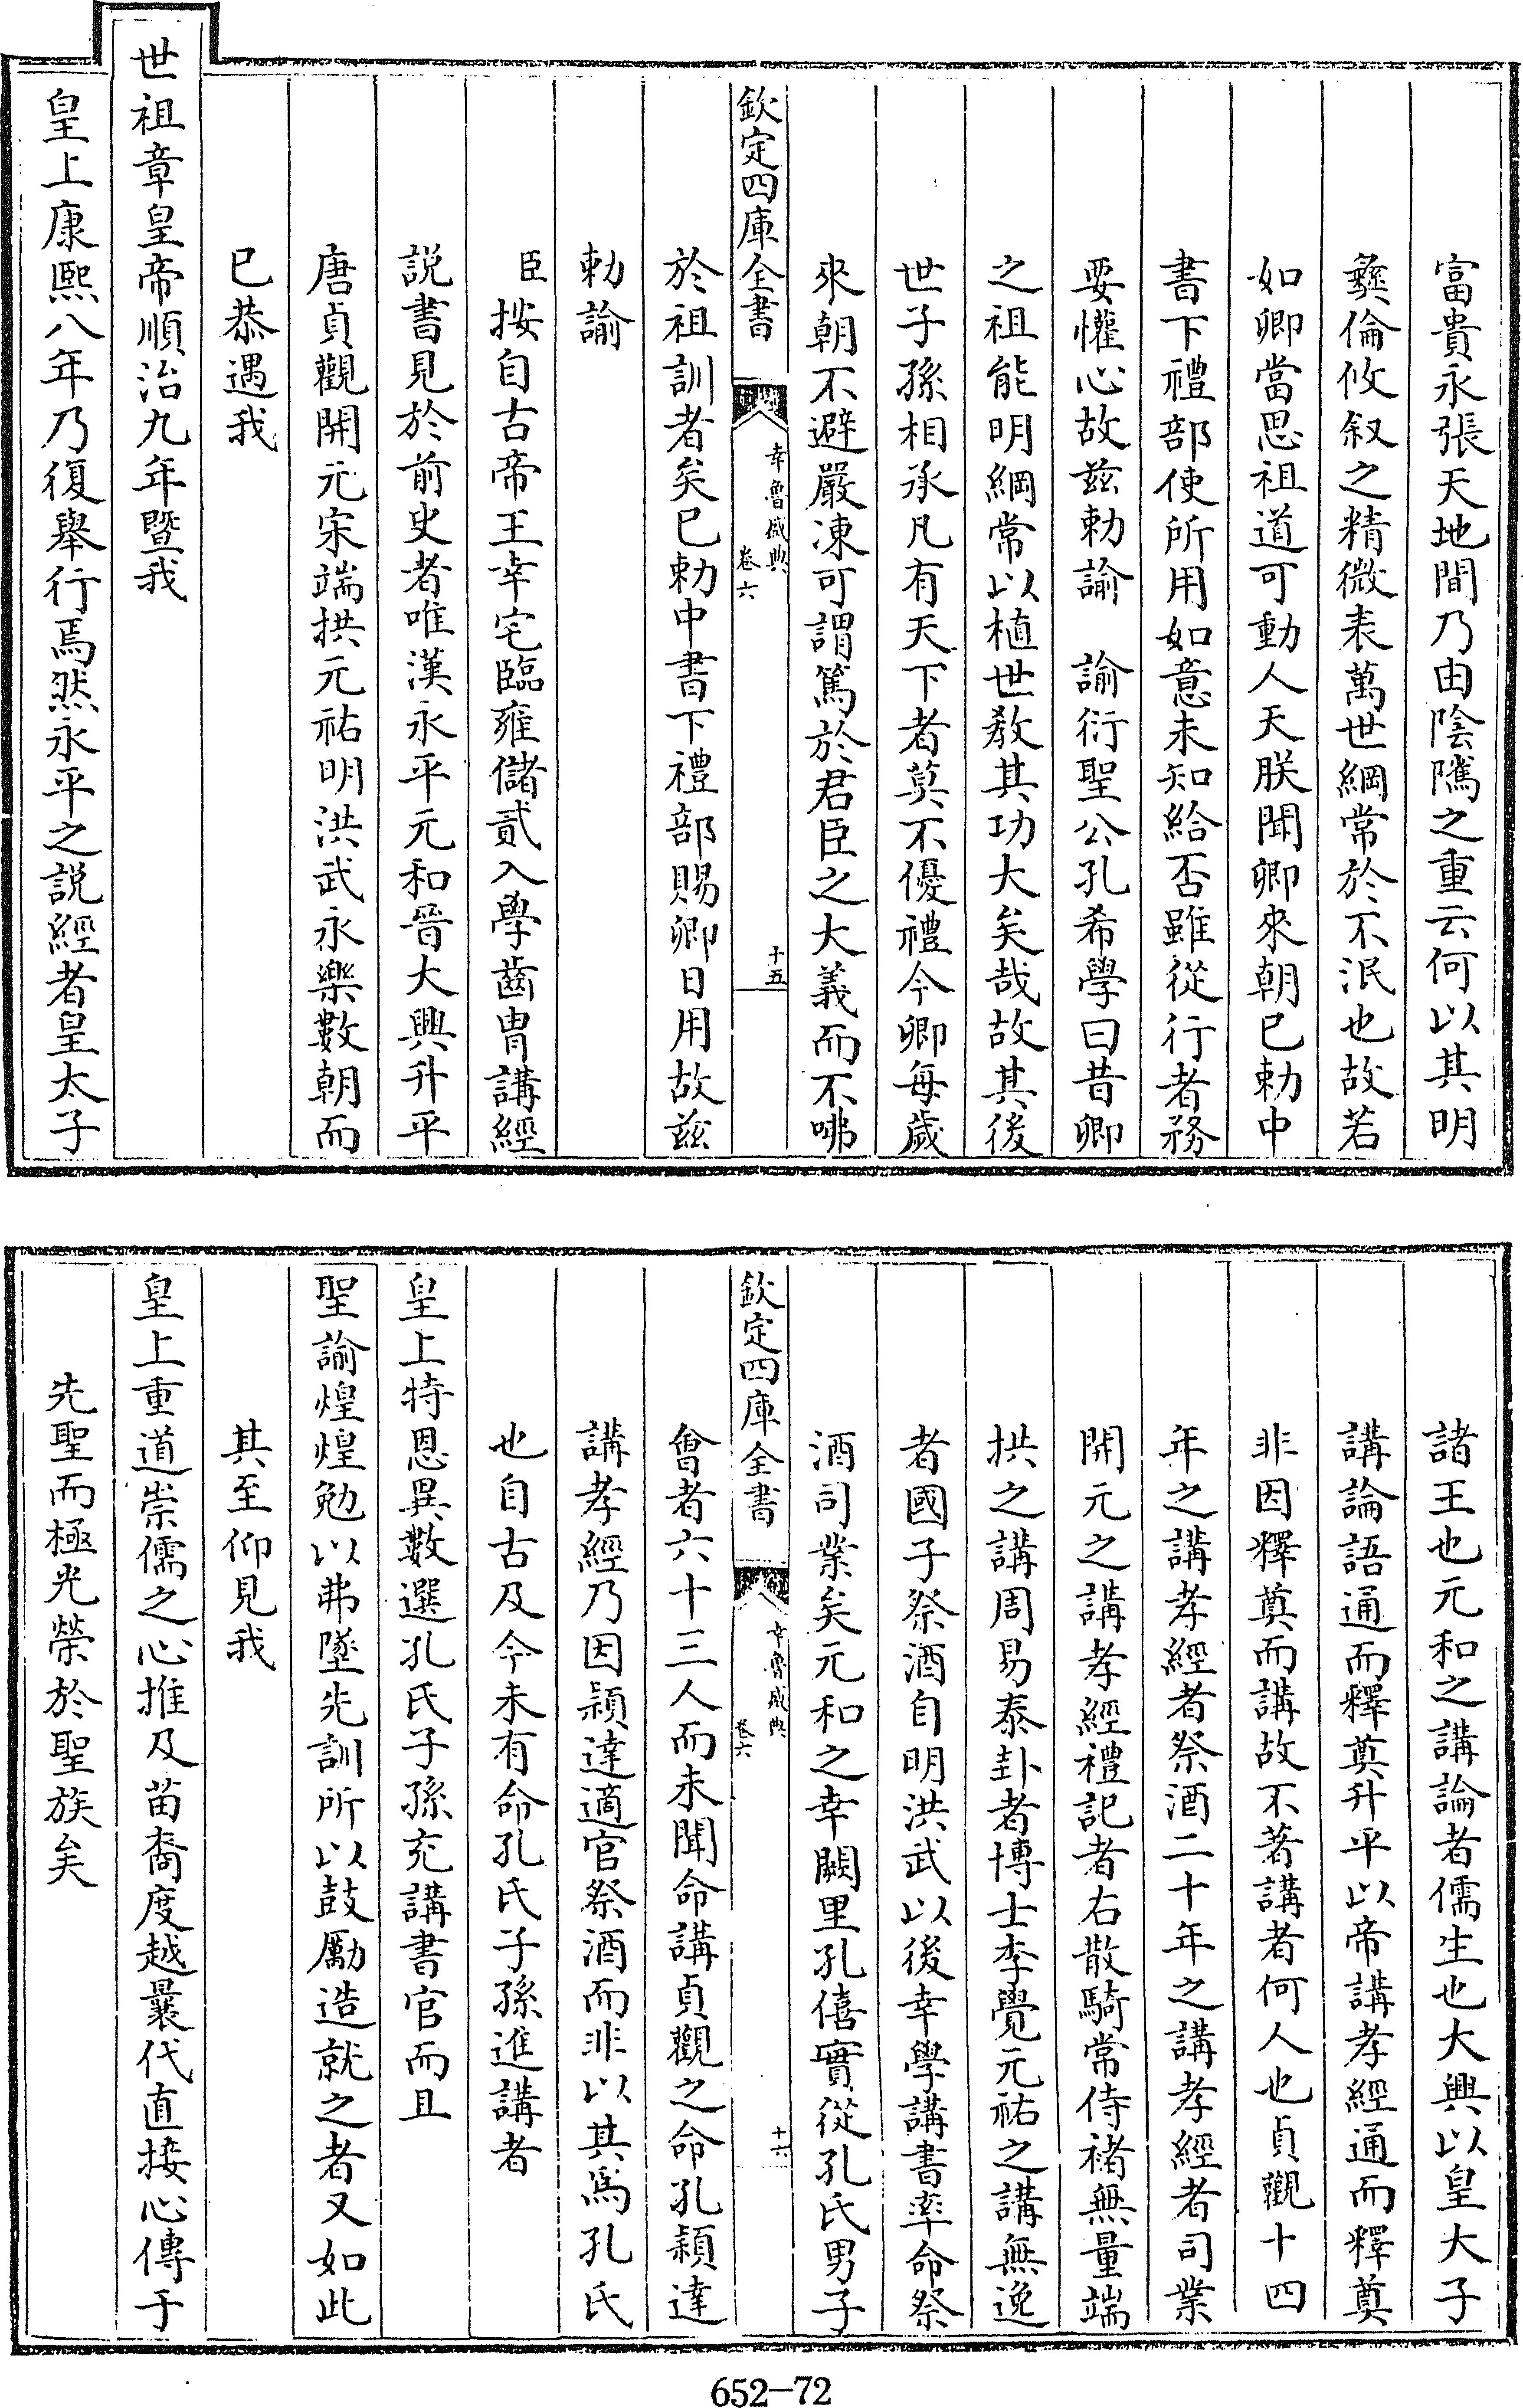 富貴永張天地間乃由陰隲之重云何以其明
彝倫攸叙之精微表萬世綱常於不泯也故若
如卿當思祖道可動人天朕聞卿來朝已勅中
書下禮部使所用如意未知給否雖從行者務
要懽心故茲勅諭　諭衍聖公孔希學曰昔卿
之祖能明綱常以植世教其功大矣哉故其後
世子孫相承凡有天下者莫不優禮今卿每歲
來朝不避嚴凍可謂篤於君臣之大義而不咈
欽定四庫全書
幸魯盛典
卷六
十五
於祖訓者矣已勅中書下禮部賜卿日用故茲
勅諭
臣按自古帝王幸宅臨雍儲貳入學齒冑講經
説書見於前史者唯漢永平元和晉大興升平
唐貞觀開元宋端拱元祐明洪武永樂數朝而
已恭遇我
世祖章皇帝順治九年暨我
皇上康熙八年乃復舉行焉然永平之説經者皇太子
諸王也元和之講論者儒生也大興以皇太子
講論語通而釋奠升平以帝講孝經通而釋奠
非因釋奠而講故不著講者何人也貞觀十四
年之講孝經者祭酒二十年之講孝經者司業
開元之講孝經禮記者右散騎常侍褚無量端
拱之講周易泰卦者博士李覺元祐之講無逸
者國子祭酒自明洪武以後幸學講書率命祭
酒司業矣元和之幸闕里孔僖實從孔氏男子
欽定四庫全書
幸魯盛典
卷六
十六
會者六十三人而未聞命講貞觀之命孔穎達
講孝經乃因穎達適官祭酒而非以其爲孔氏
也自古及今未有命孔氏子孫進講者
皇上特恩異數選孔氏子孫充講書官而且
聖諭煌煌勉以弗墜先訓所以鼓勵造就之者又如此
其至仰見我
皇上重道崇儒之心推及苗裔度越曩代直接心傳于
先聖而極光榮於聖族矣
652-72